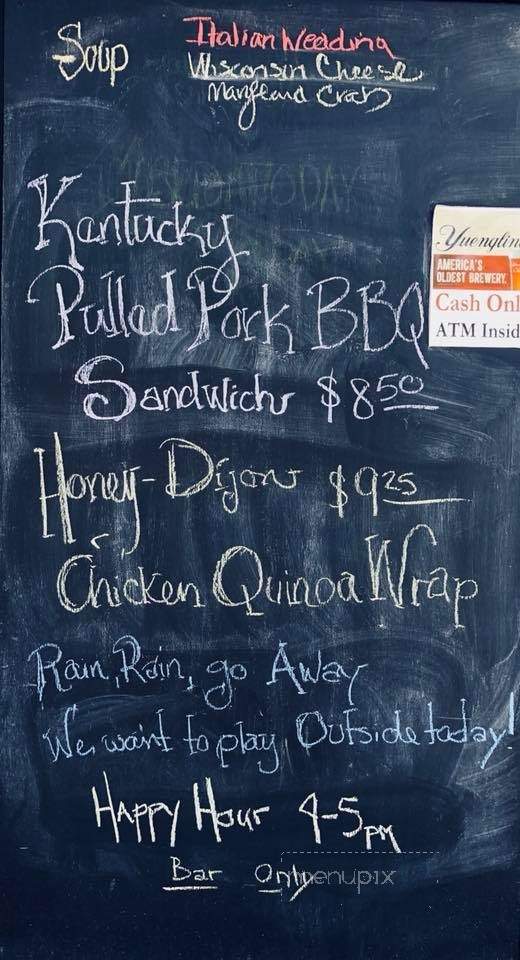 Soup
Italian Wedding
Wisconsin Cheese
Maryland Crab
Kentucky
Pulled Pork BBQ
Sandwich $8.50
Yuengling
AMERICA'S
OLDEST BREWERY.
Cash Onl
ATM Insid
Honey-Dijon $9.25
Chicken Quinoa Wrap
Rain, Rain, go Away
We want to play Outside today!
Happy Hour 4-5pm
Bar Only
menupix